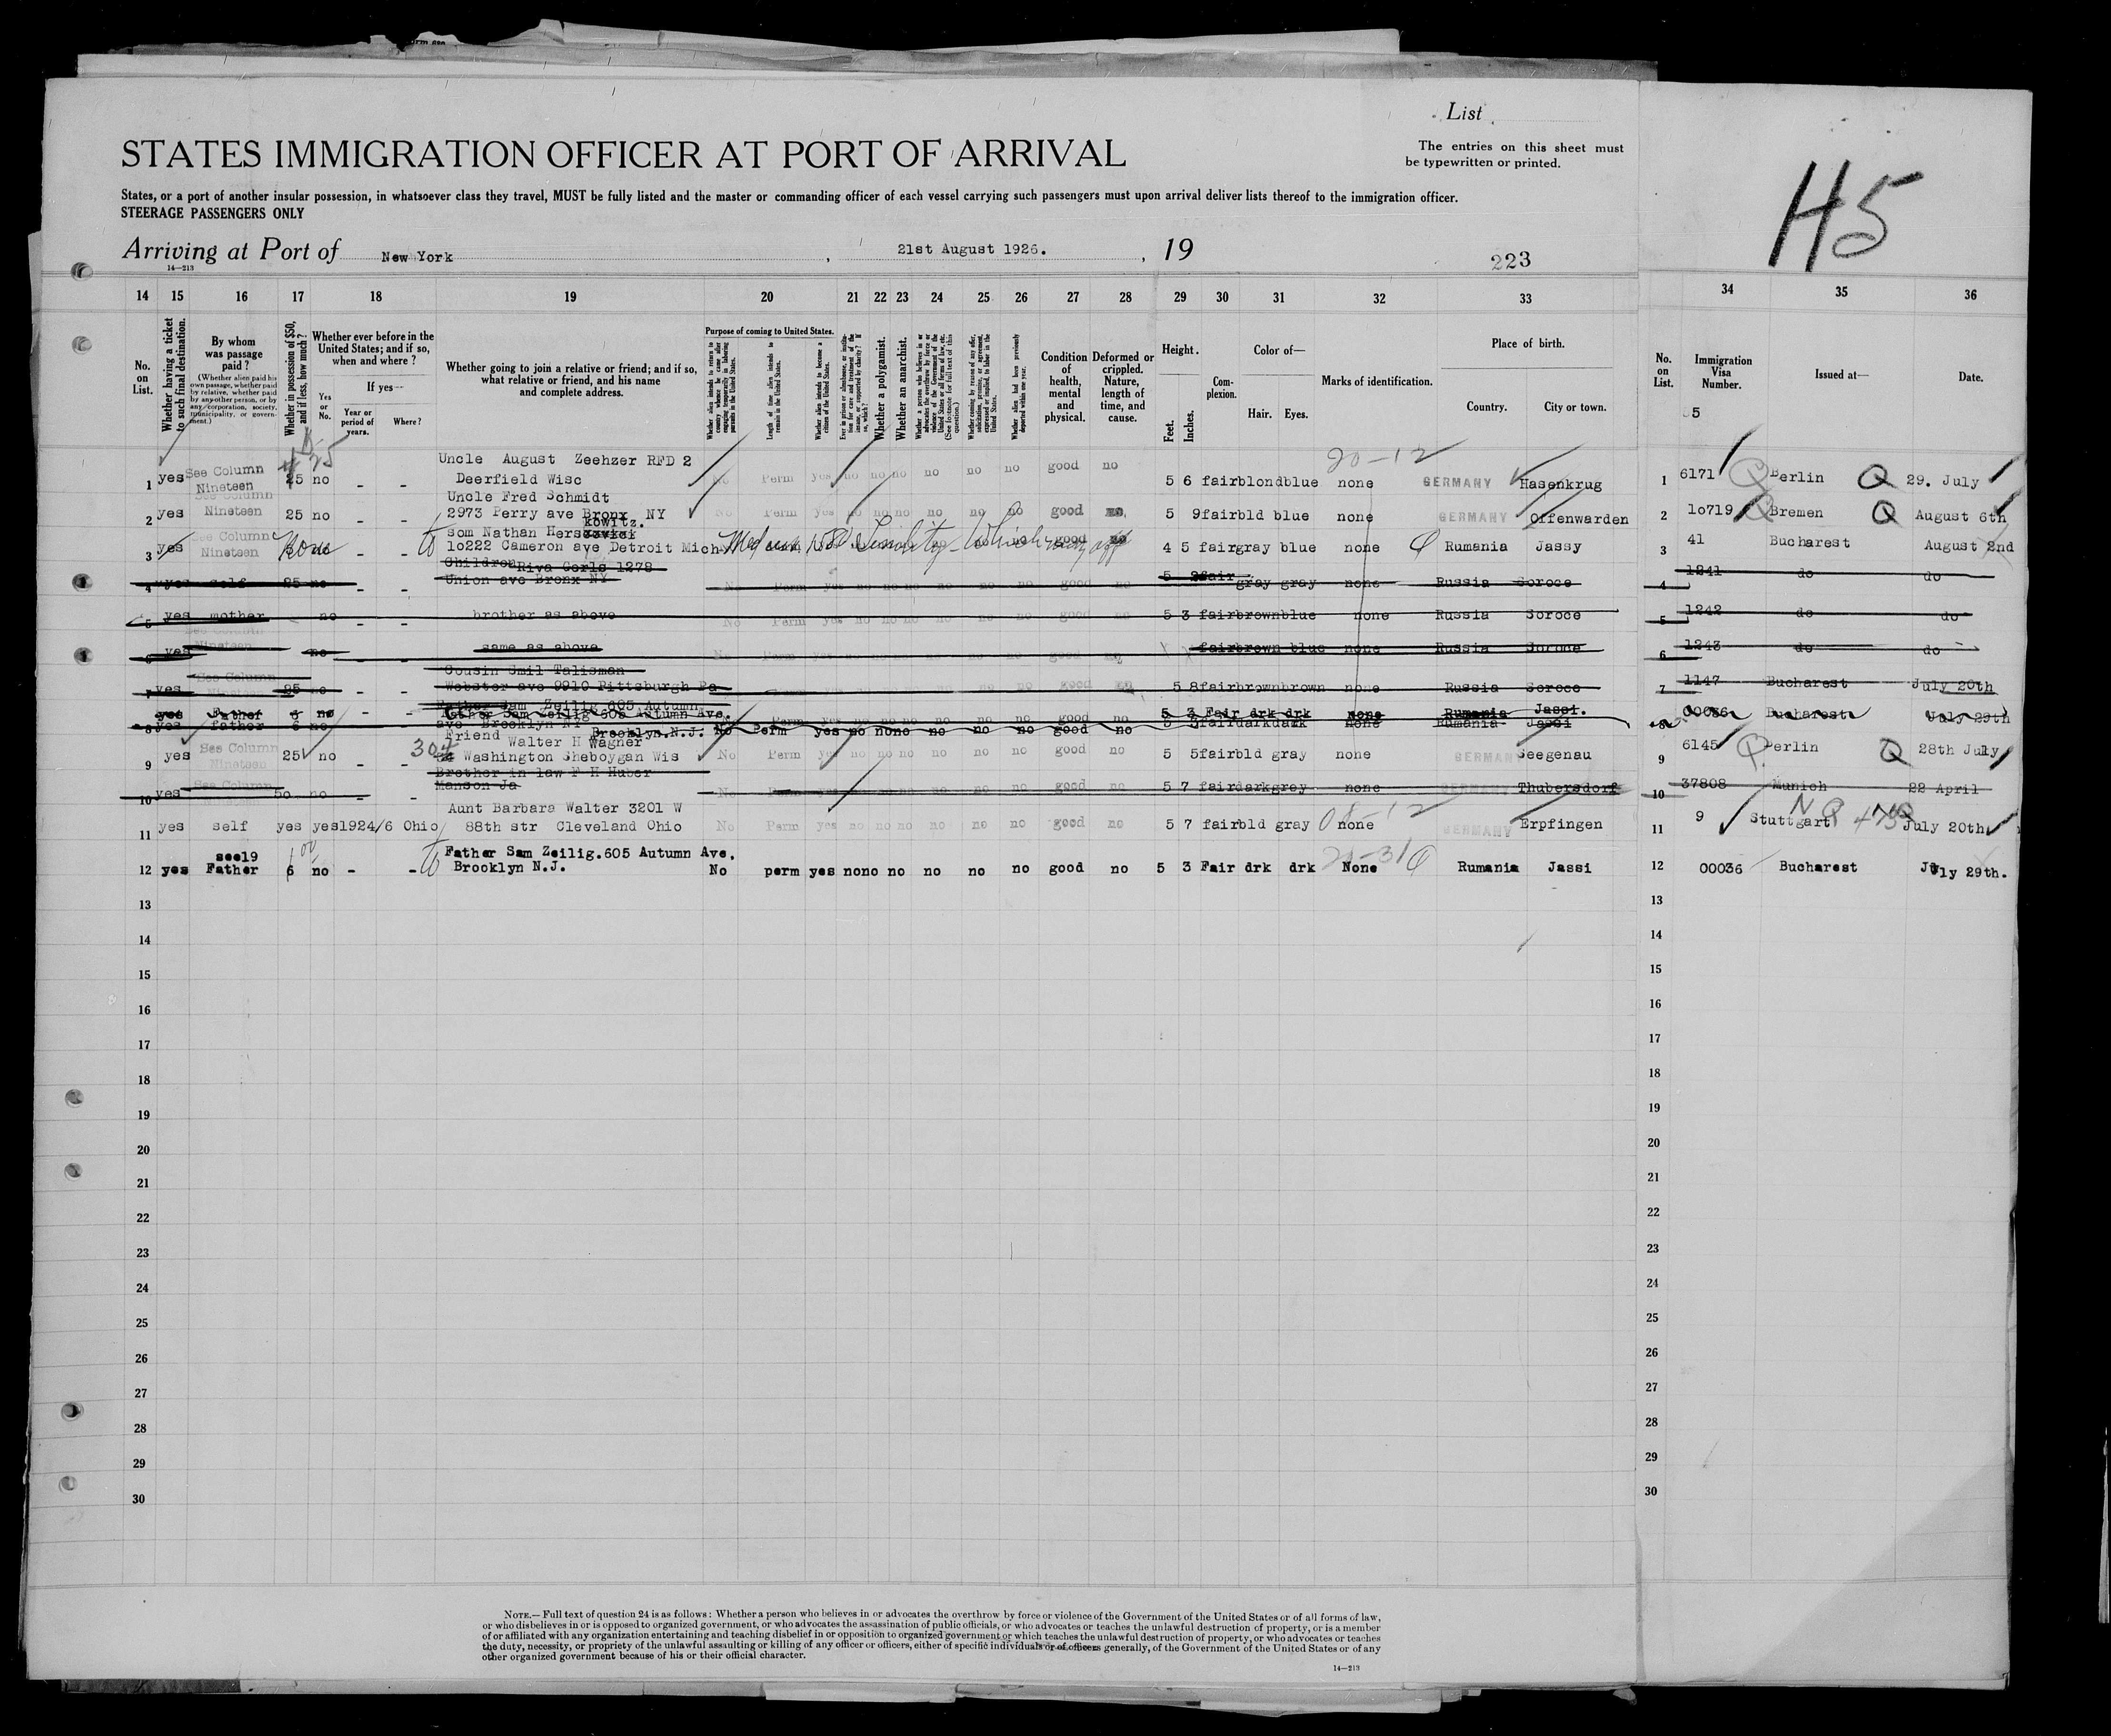 List
STATES IMMIGRATION OFFICER AT PORT OF ARRIVAL
The entries on this sheet must
be typewritten or printed.
States, or a port of another insular possession, in whatsoever class they travel, MUST be fully listed and the master or commanding officer of each vessel carrying such passengers must upon arrival deliver lists thereof to the immigration officer.
STEERAGE PASSENGERS ONLY
H5
Arriving at Port of New York, 21st August 1926., 19
223
14—213
14 15 16 17 18 19 20 21 22 23 24 25 26 27 28 29 30 31 32 33 34 35 36
No. on List.
Whether having a ticket to such final destination.
By whom was passage paid?
(Whether alien paid his own passage, whether paid by relative, whether paid by any other person, or by any corporation, society, municipality, or government.)
Whether in possession of $50, and if less, how much?
Whether ever before in the United States; and if so, when and where?
Yes or No.
If yes—
Year or period of years.
Where?
Whether going to join a relative or friend; and if so, what relative or friend, and his name and complete address.
Purpose of coming to United States.
Whether alien intends to return to country whence he came after engaging temporarily in laboring pursuits in the United States.
Length of time alien intends to remain in the United States.
Whether alien intends to become a citizen of the United States.
Whether a polygamist.
Whether an anarchist.
Condition of health, mental and physical.
Deformed or crippled. Nature, length of time, and cause.
Height.
Feet. Inches.
Complexion.
Color of—
Hair. Eyes.
Marks of identification.
Place of birth.
Country. City or town.
No. on List.
Immigration Visa Number.
Issued at—
Date.
5
20-12
Uncle August Zeehzer RFD 2
1 yes See Column Nineteen 25 no - - Deerfield Wisc No Perm yes no no no no no no good no 5 6 fair blond blue none GERMANY Hasenkrug 1 6171 Berlin Q 29. July
Uncle Fred Schmidt
2 yes See Column Nineteen 25 no - - 2973 Perry ave Bronx NY No Perm yes no no no no no no good no 5 9 fair bld blue none GERMANY Offenwarden 2 1o719 Bremen Q August 6th
kowitz.
som Nathan Hers
3 yes See Column Nineteen None - - 1o222 Cameron ave Detroit Mich Med cert Senility no no good no 4 5 fair gray blue none Rumania Jassy 3 41 Bucharest August 2nd
Children Riva Gorls 1278
4 yes self 25 no - - Union ave Bronx NY No Perm yes no no no no no no good no 5 2 fair gray gray none Russia Soroce 4 1241 do do
5 yes mother no - - brother as above No Perm yes no no no no no no good no 5 3 fair brown blue none Russia Soroce 5 1242 do do
6 yes See Column Nineteen no same as above No Perm yes no no good no fair brown blue none Russia Soroce 6 1243 do do
Cousin Smil Talisman
7 yes See Column Nineteen 25 no - - Webster ave 9910 Pittsburgh Pa no no good no 5 8 fair brown brown none Russia Soroce 7 1147 Bucharest July 20th
Father Sam Zeilig 605 Autumn
yes Father 6 no - - Father Sam Zeilig 605 Autumn Ave. 5 3 Fair drk drk None Rumania Jassi. 00036 Bucharest July 29th
8 yes father 6 no ave Brooklyn NY Brooklyn.N.J. No Perm yes no no no no no no good no fair dark dark None Rumania Jassi 8
Friend Walter H Wagner
9 yes See Column Nineteen 25 no 304 Washington Sheboygan Wis No Perm yes no no no no no no good no 5 5 fair bld gray none GERMANY Seegenau 9 6145 Berlin Q 28th July
Brother in law F H Huber
10 yes See Column 5o no - Manson Ja No Perm yes no no no good no 5 7 fair dark grey none GERMANY Thubersdorf 10 37808 Munich 22 April
Aunt Barbara Walter 3201 W
11 yes self yes yes 1924/6 Ohio 88th str Cleveland Ohio No Perm yes no no no no no no good no 5 7 fair bld gray none GERMANY Erpfingen 11 9 Stuttgart N Q July 20th
see19 Father Sam Zeilig.605 Autumn Ave.
12 yes Father 6 no - - Brooklyn N.J. No perm yes no no no no no no good no 5 3 Fair drk drk None Rumania Jassi 12 00036 Bucharest July 29th.
13 13
14 14
15 15
16 16
17 17
18 18
19 19
20 20
21 21
22 22
23 23
24 24
25 25
26 26
27 27
28 28
29 29
30 30
NOTE.—Full text of question 24 is as follows: Whether a person who believes in or advocates the overthrow by force or violence of the Government of the United States or of all forms of law,
or who disbelieves in or is opposed to organized government, or who advocates the assassination of public officials, or who advocates or teaches the unlawful destruction of property, or is a member
of or affiliated with any organization entertaining and teaching disbelief in or opposition to organized government or which teaches the unlawful destruction of property, or who advocates or teaches
the duty, necessity, or propriety of the unlawful assaulting or killing of any officer or officers, either of specific individuals or of officers generally, of the Government of the United States or of any
other organized government because of his or their official character.
14—213